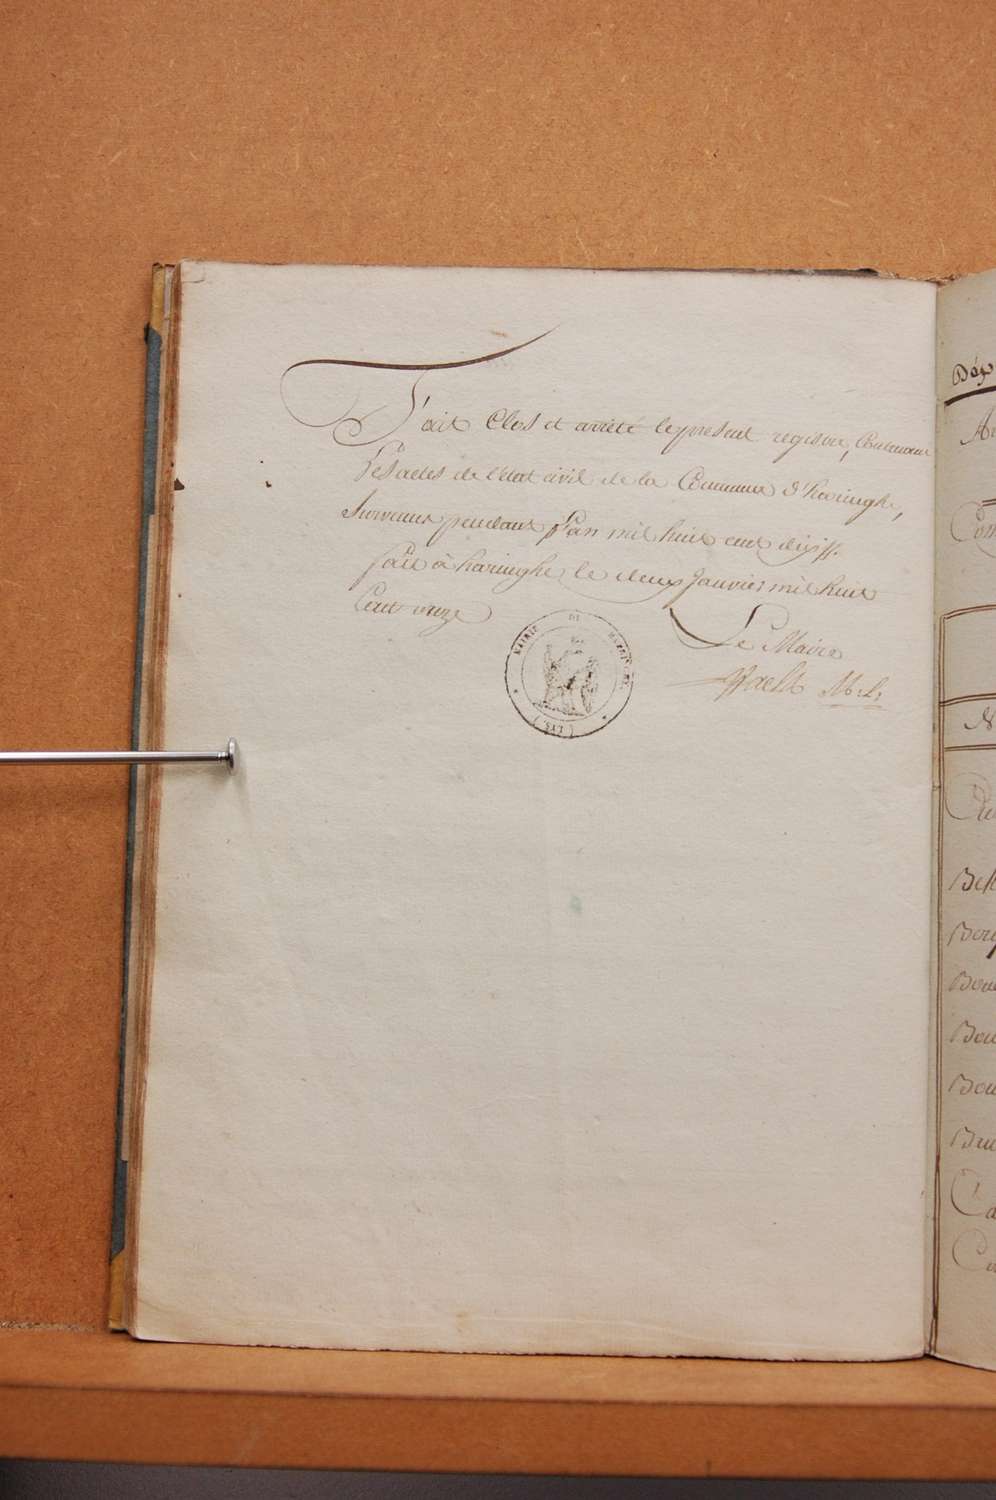 Fait Clos et arrêté le present registre, Contenant
Les actes de l'état civil de la Commune d'haringhe,
Survenus pendant l'an mil huit cent dix ff.
fait à haringhe le deux Janvier mil huit
Cent onze
Le Maire
M: L:
MAIRIE DE
(LYS)
Dép
Com
Bou
Bou
Bou